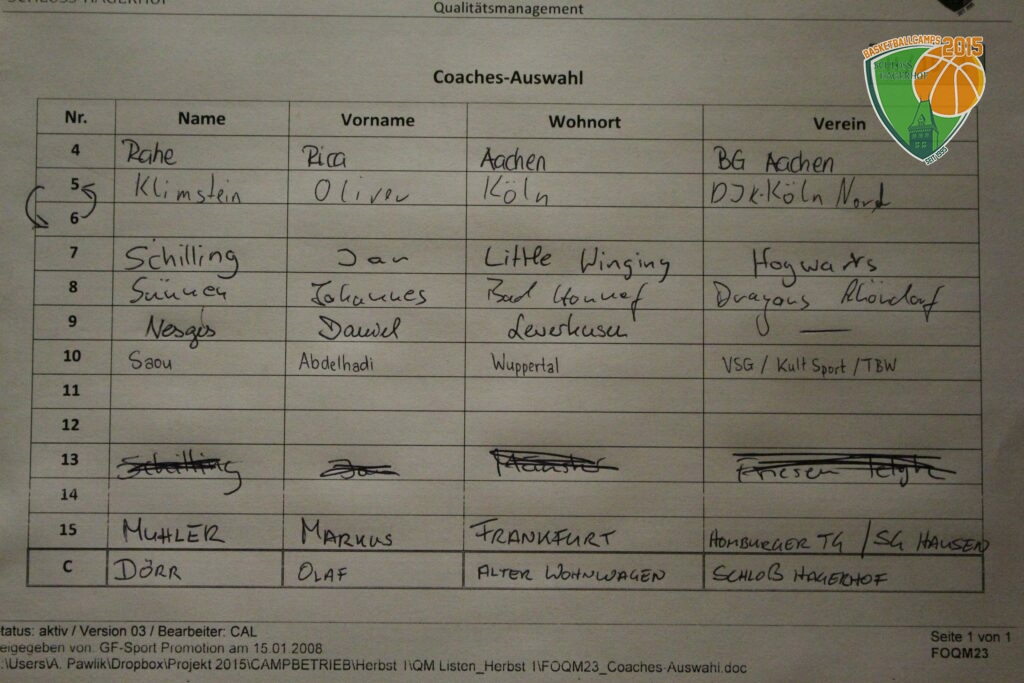 SCHLOSS HAGERHOF
Qualitätsmanagement
BASKETBALLCAMPS 2015
SCHLOSS
HAGERHOF
SEIT 1995
Coaches-Auswahl
Nr. Name Vorname Wohnort Verein
4 Rahe Rica Aachen BG Aachen
5 Klimstein Oliver Köln DJK-Köln Nord
6
7 Schilling Jan Little Winging Hogwarts
8 Sünnen Johannes Bad Honnef Dragons Rhöndorf
9 Daniel Leverkusen —
10 Saou Abdelhadi Wuppertal VSG / Kult Sport / TBW
11
12
13 Schilling Jan Münster Friesen
14
15 MUHLER MARKUS FRANKFURT HOMBURGER TG / SG HAUSEN
C DÖRR OLAF ALTER WOHNWAGEN SCHLOß HAGERHOF
tatus: aktiv / Version 03 / Bearbeiter: CAL
eigegeben von: GF-Sport Promotion am 15.01.2008
.:\Users\A. Pawlik\Dropbox\Projekt 2015\CAMPBETRIEB\Herbst 1\QM Listen_Herbst 1\FOQM23_Coaches-Auswahl.doc
Seite 1 von 1
FOQM23